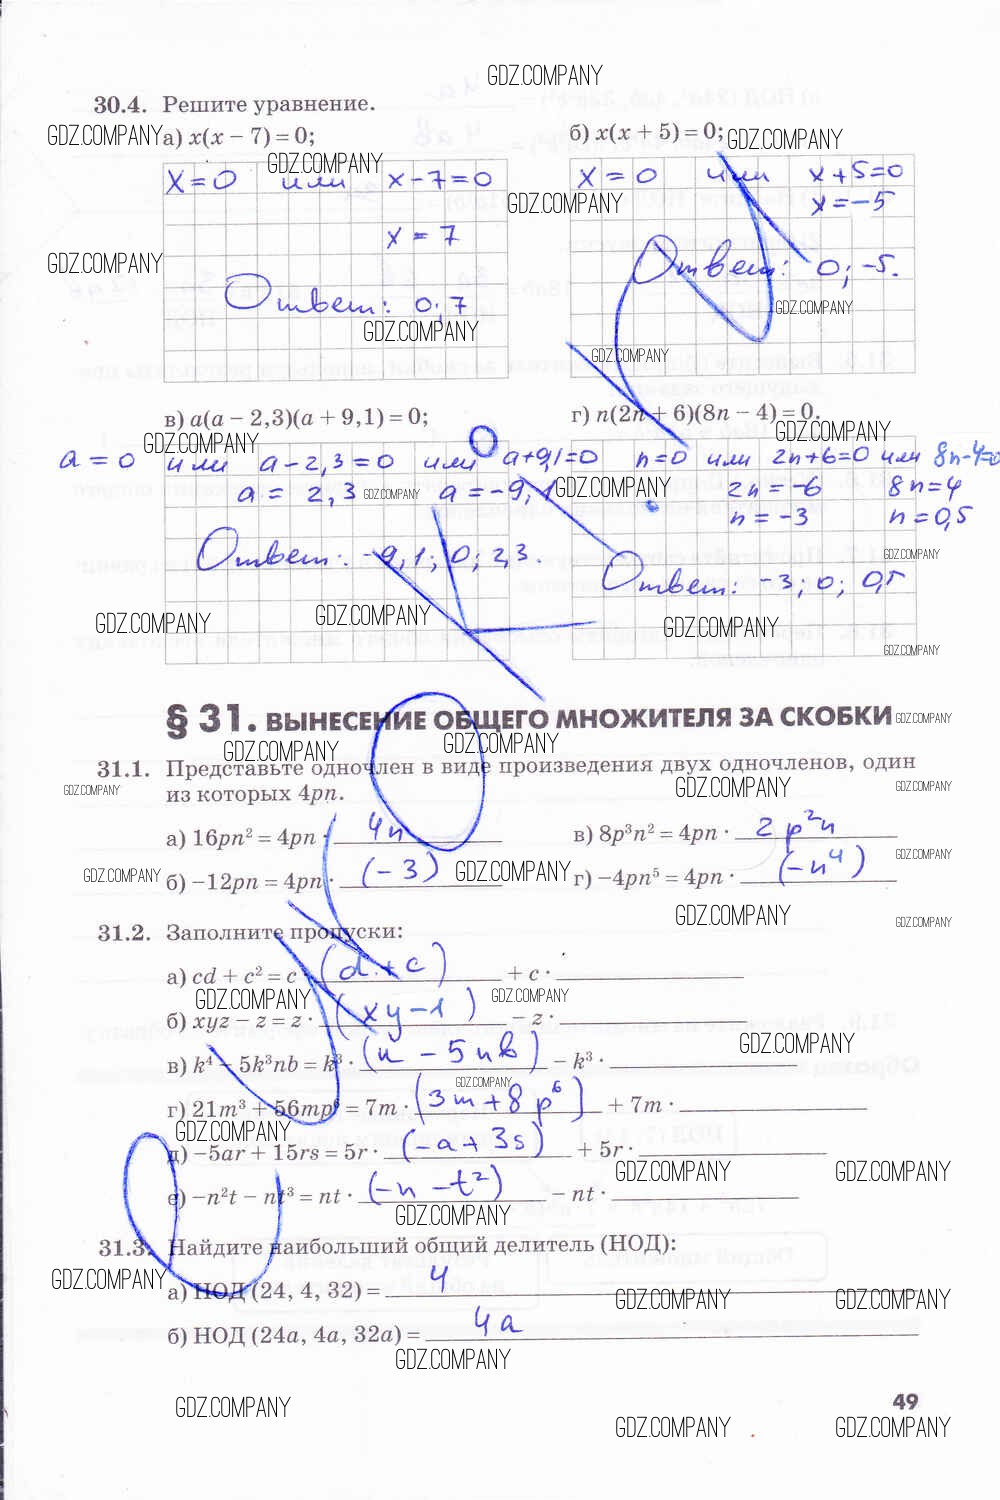 GDZ.COMPANY
30.4. Решите уравнение.
GDZ.COMPANY а) x(x − 7) = 0; б) x(x + 5) = 0; GDZ.COMPANY
GDZ.COMPANY
x = 0 или x − 7 = 0 x = 0 или x + 5 = 0
GDZ.COMPANY x = −5
x = 7
GDZ.COMPANY
Ответ: 0; 7 Ответ: 0; −5.
GDZ.COMPANY GDZ.COMPANY
GDZ.COMPANY
в) a(a − 2,3)(a + 9,1) = 0; г) n(2n + 6)(8n − 4) = 0.
GDZ.COMPANY GDZ.COMPANY
a = 0 или a − 2,3 = 0 или a + 9,1 = 0 n = 0 или 2n + 6 = 0 или 8n − 4 = 0
a = 2,3 GDZ.COMPANY a = −9,1 GDZ.COMPANY 2n = −6 8n = 4
n = −3 n = 0,5
Ответ: −9,1; 0; 2,3. GDZ.COMPANY
Ответ: −3; 0; 0,5
GDZ.COMPANY GDZ.COMPANY GDZ.COMPANY
GDZ.COMPANY
§ 31. ВЫНЕСЕНИЕ ОБЩЕГО МНОЖИТЕЛЯ ЗА СКОБКИ GDZ.COMPANY
GDZ.COMPANY GDZ.COMPANY
31.1. Представьте одночлен в виде произведения двух одночленов, один
GDZ.COMPANY из которых 4pn. GDZ.COMPANY GDZ.COMPANY
а) 16pn² = 4pn · 4n в) 8p³n² = 4pn · 2p²n
GDZ.COMPANY
GDZ.COMPANY б) −12pn = 4pn · (−3) GDZ.COMPANY г) −4pn⁵ = 4pn · (−n⁴)
GDZ.COMPANY GDZ.COMPANY
31.2. Заполните пропуски:
а) cd + c² = c · (d + c) + c ·
GDZ.COMPANY GDZ.COMPANY
б) xyz − z = z · (xy − 1) − z ·
GDZ.COMPANY
в) k⁴ − 5k³nb = k³ · (k − 5nb) − k³ ·
GDZ.COMPANY
г) 21m³ + 56mp⁶ = 7m · (3m + 8p⁶) + 7m ·
GDZ.COMPANY
д) −5ar + 15rs = 5r · (−a + 3s) + 5r ·
GDZ.COMPANY GDZ.COMPANY
е) −n²t − nt³ = nt · (−n − t²) − nt ·
GDZ.COMPANY
31.3. Найдите наибольший общий делитель (НОД):
GDZ.COMPANY
а) НОД (24, 4, 32) = 4
GDZ.COMPANY GDZ.COMPANY
б) НОД (24a, 4a, 32a) = 4a
GDZ.COMPANY
49
GDZ.COMPANY
GDZ.COMPANY GDZ.COMPANY